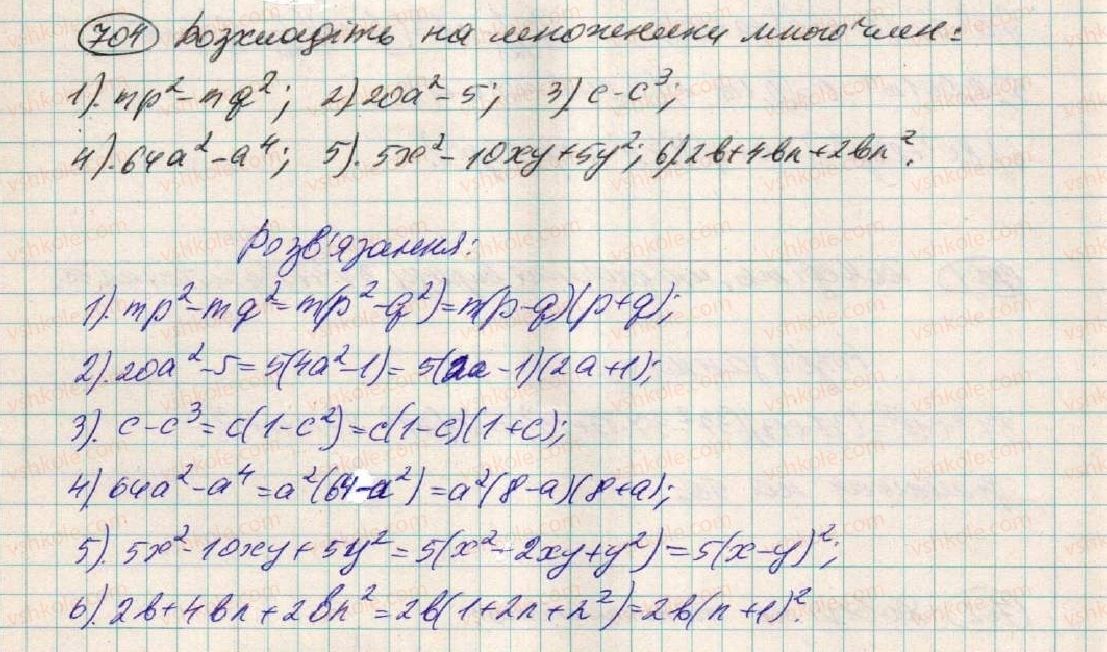 704 Розкладіть на множники многочлен:
1). mp² - mq²; 2) 20a² - 5; 3) c - c³;
4). 64a² - a⁴; 5). 5x² - 10xy + 5y²; 6) 2b + 4bn + 2bn².
Розв'язання:
1). mp² - mq² = m(p² - q²) = m(p - q)(p + q);
2). 20a² - 5 = 5(4a² - 1) = 5(2a - 1)(2a + 1);
3). c - c³ = c(1 - c²) = c(1 - c)(1 + c);
4) 64a² - a⁴ = a²(64 - a²) = a²(8 - a)(8 + a);
5). 5x² - 10xy + 5y² = 5(x² - 2xy + y²) = 5(x - y)²;
6). 2b + 4bn + 2bn² = 2b(1 + 2n + n²) = 2b(n + 1)².